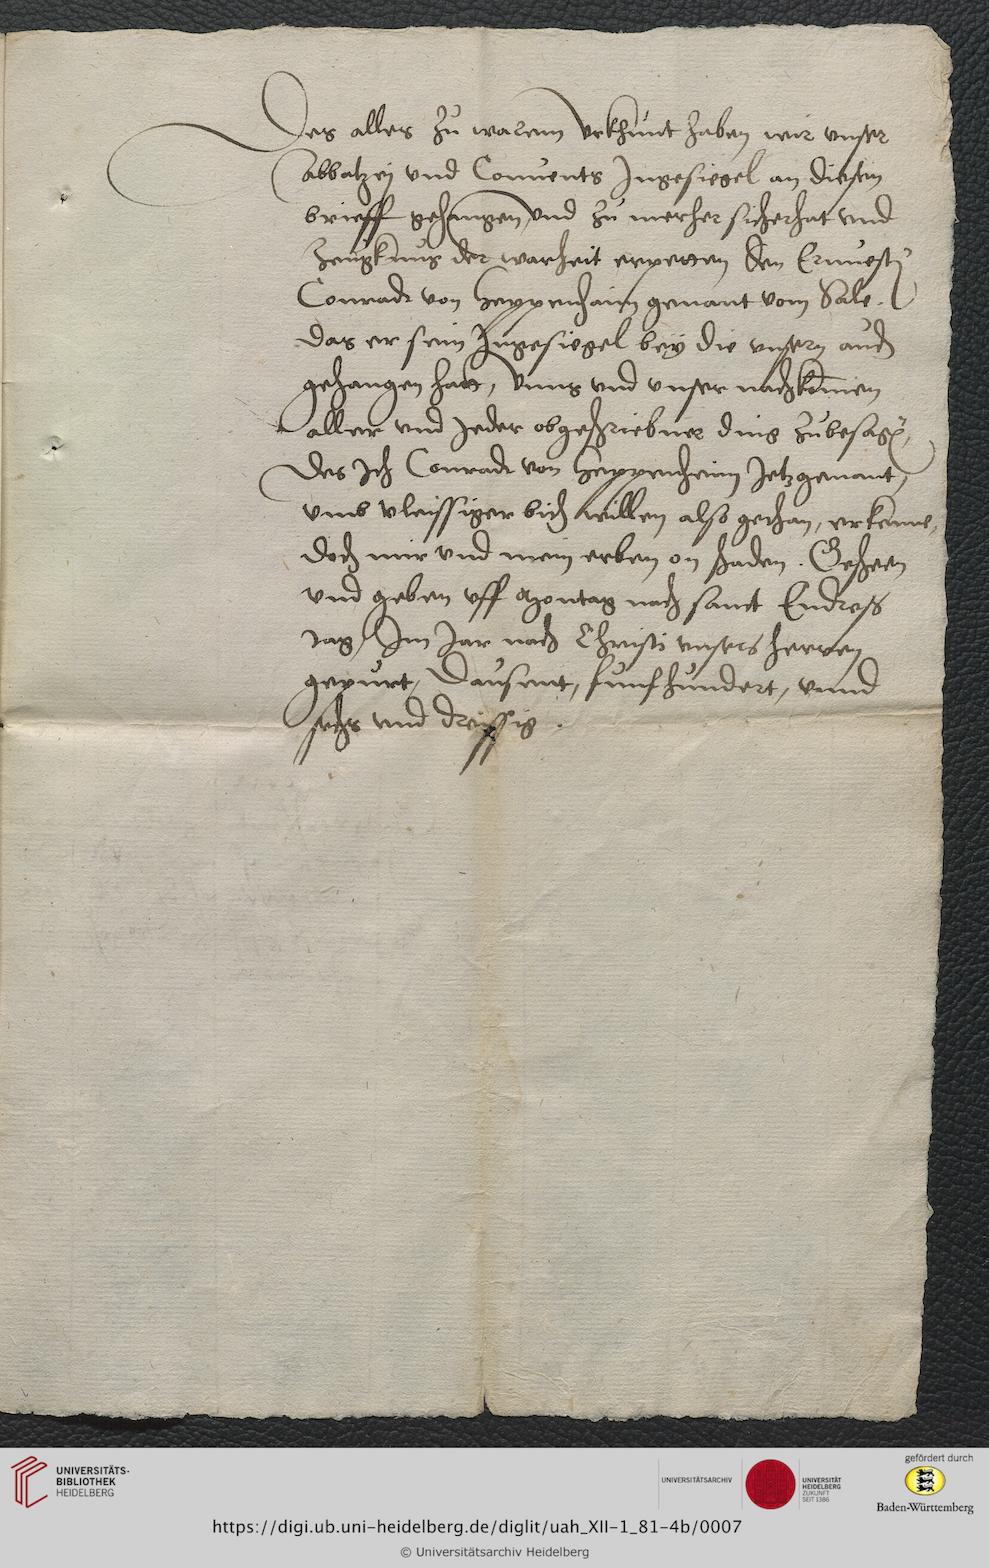 Des alles zu warem vrkhunt haben wir vnser
abbatzey vnd Conuents Ingesiegel an diesen
brieff gehangen vnd zu mercher sicherhat vnd
zeugknus der warheit erpetten den Ernuesten
Conradt von Heppenhaim genant vom Sale.
das er sein Ingesiegel bey die vnsern auch
gehangen hatt, vnns vnd vnser nachkomen
aller vnd Jeder obgeschriebner ding zubesagen,
Des Ich Conradt von Heppenheim Jetzgenant,
vmb vleissiger bith willen also gethan, erkenne,
doch mir vnd mein erben on schaden. Gescheen
vnd geben vff Montag nach sanct Endress
tag, Im Jar nach Christi vnsers herren
gepurt, Dausent, funfhundert, vnnd
sechs vnd dreissig.
UNIVERSITÄTS-
BIBLIOTHEK
HEIDELBERG
UNIVERSITÄTSARCHIV
UNIVERSITÄT
HEIDELBERG
ZUKUNFT
SEIT 1386
gefördert durch
Baden-Württemberg
https://digi.ub.uni-heidelberg.de/diglit/uah_XII-1_81-4b/0007
© Universitätsarchiv Heidelberg